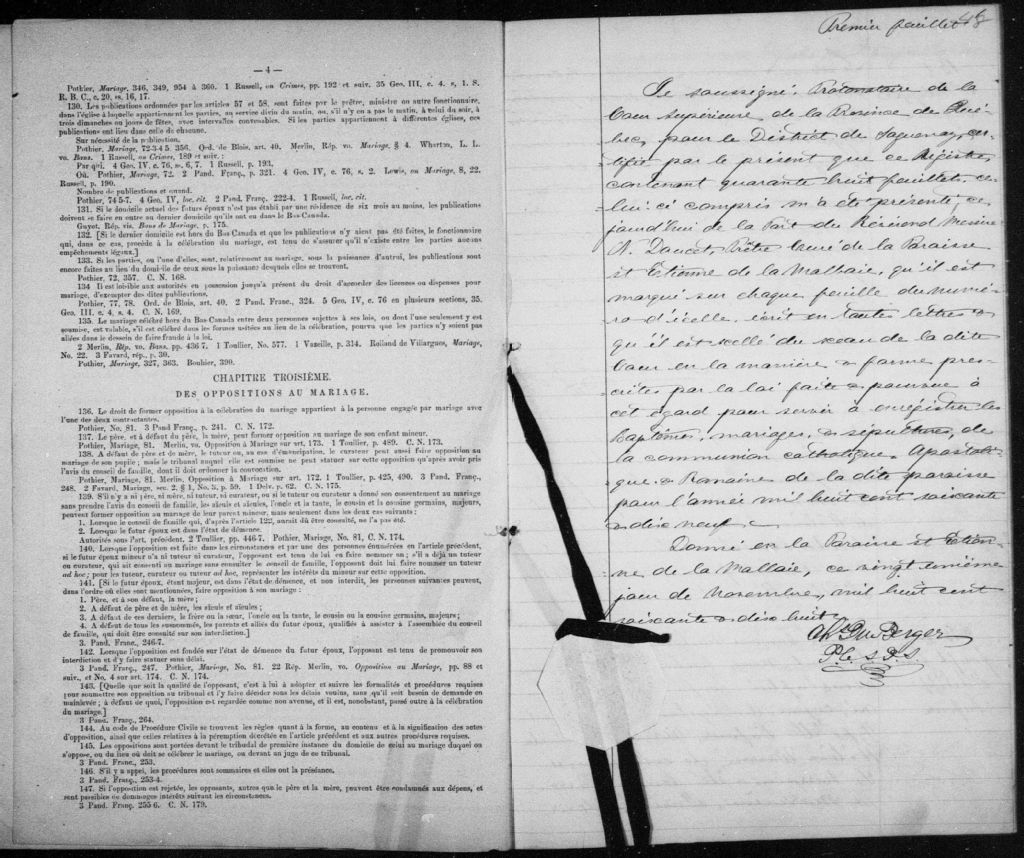 — 4 —
Pothier, Mariage, 346, 349, 954 à 360. 1 Russell, on Crimes, pp. 192 et suiv. 35 Geo. III, c. 4. s, 1. S.
R. B. C., c. 20, ss. 16, 17.
130. Les publications ordonnées par les articles 57 et 58, sont faites par le prêtre, ministre ou autre fonctionnaire,
dans l'église à laquelle appartiennent les parties, au service divin du matin, ou, s'il n'y en a pas le matin, à celui du soir, à
trois dimanches ou jours de fêtes, avec intervalles convenables. Si les parties appartiennent à différentes églises, ces
publications ont lieu dans celle de chacune.
Sur nécessité de la publication.
Pothier, Mariage, 72-3-4 5. 356. Ord. de Blois, art. 40. Merlin, Rép. vo. Mariage, § 4. Wharton, L. L.
vo. Bans. 1 Russell, on Crimes, 189 et suiv. :
Par qui. 4 Geo. IV, c. 76, s. 6, 7. 1 Russell, p. 193.
Où. Pothier, Mariage, 72. 2 Pand. Franç., p. 321. 4 Geo. IV, c. 76, s. 2. Lewis, on Mariage, 8, 22.
Russell, p. 190.
Nombre de publications et quand.
Pothier, 74 5-7. 4 Geo. IV, loc. cit. 2 Pand. Franç. 222-4. 1 Russell, loc. cit.
131. Si le domicile actuel des futurs époux n'est pas établi par une résidence de six mois au moins, les publications
doivent se faire en outre au dernier domicile qu'ils ont eu dans le Bas Canada.
Guyot, Rép. vis. Bans de Mariage, p. 175.
132. [Si le dernier domicile est hors du Bas Canada et que les publications n'y aient pas été faites, le fonctionnaire
qui, dans ce cas, procède à la célébration du mariage, est tenu de s'assurer qu'il n'existe entre les parties aucuns
empêchements légaux.]
133. Si les parties, ou l'une d'elles, sont, relativement au mariage, sous la puissance d'autrui, les publications sont
encore faites au lieu du domicile de ceux sous la puissance desquels elles se trouvent.
Pothier, 72, 357. C. N. 168.
134 Il est loisible aux autorités en possession jusqu'à présent du droit d'accorder des licences ou dispenses pour
mariage, d'exempter des dites publications.
Pothier, 77, 78. Ord. de Blois, art. 40. 2 Pand. Franc., 324. 5 Geo. IV, c. 76 en plusieurs sections, 35.
Geo. III. c. 4, s. 4. C. N. 169.
135. Le mariage célébré hors du Bas Canada entre deux personnes sujettes à ses lois, ou dont l'une seulement y est
soumise, est valable, s'il est célébré dans les formes usitées au lieu de la célébration, pourvu que les parties n'y soient pas
allées dans le dessein de faire fraude à la loi.
2 Merlin, Rép. vo. Bans. pp. 436 7. 1 Toullier, No. 577. 1 Vazeille, p. 314. Rolland de Villargues, Mariage,
No. 22. 3 Favard, rép., p. 30.
Pothier, Mariage, 327, 363. Bouhier, 390.
CHAPITRE TROISIÈME.
DES OPPOSITIONS AU MARIAGE.
136. Le droit de former opposition à la célébration du mariage appartient à la personne engagée par mariage avec
l'une des deux contractantes.
Pothier, No. 81. 3 Pand Franç., p. 241. C. N. 172.
137. Le père, et à défaut du père, la mère, peut former opposition au mariage de son enfant mineur.
Pothier, Mariage, 81. Merlin, vo. Opposition à Mariage sur art. 173. 1 Toullier, p. 489. C. N. 173.
138. A défaut de père et de mère, le tuteur ou, au cas d'émancipation, le curateur peut aussi faire opposition au
mariage de son pupille ; mais le tribunal auquel elle est soumise ne peut statuer sur cette opposition qu'après avoir pris
l'avis du conseil de famille, dont il doit ordonner la convocation.
Pothier, Mariage, 81. Merlin, Opposition à Mariage, sur art. 172. 1 Toullier, p. 425, 490. 3 Pand. Franç.,
248. 2 Favard, Mariage, sec. 2. § 1, No. 5, p. 59. 1 Delv. p. 62. C. N. 175.
139. S'il n'y a ni père, ni mère, ni tuteur, ni curateur, ou si le tuteur ou curateur a donné son consentement au mariage
sans prendre l'avis du conseil de famille, les aïeuls et aïeules, l'oncle et la tante, le cousin et la cousine germains, majeurs,
peuvent former opposition au mariage de leur parent mineur, mais seulement dans les deux cas suivants :
1. Lorsque le conseil de famille qui, d'après l'article 122, aurait dû être consulté, ne l'a pas été.
2. Lorsque le futur époux est dans l'état de démence.
Autorités sous l'art. précédent. 2 Toullier, pp. 446-7. Pothier, Mariage, No. 81, C. N. 174.
140. Lorsque l'opposition est faite dans les circonstances et par une des personnes énumérées en l'article précédent,
si le futur époux mineur n'a ni tuteur ni curateur, l'opposant est tenu de lui en faire nommer un ; s'il a déjà un tuteur
ou curateur, qui ait consenti au mariage sans consulter le conseil de famille, l'opposant doit lui faire nommer un tuteur
ad hoc ; pour les tuteur, curateur ou tuteur ad hoc, représenter les intérêts du mineur sur cette opposition.
141. [Si le futur époux, étant majeur, est dans l'état de démence, et non interdit, les personnes suivantes peuvent,
dans l'ordre où elles sont mentionnées, faire opposition à son mariage :
1. Père, et à son défaut, la mère ;
2. A défaut de père et de mère, les aïeuls et aïeules ;
3. A défaut de ces derniers, le frère ou la sœur, l'oncle ou la tante, le cousin ou la cousine germains, majeurs ;
4. A défaut de tous les susnommés, les parents et alliés du futur époux, qualifiés à assister à l'assemblée du conseil
de famille, qui doit être consulté sur son interdiction.]
3. Pand. Franç., 246-7.
142. Lorsque l'opposition est fondée sur l'état de démence du futur époux, l'opposant est tenu de promouvoir son
interdiction et d'y faire statuer sans délai.
3 Pand. Franç., 247. Pothier, Mariage, No. 81. 22 Rép. Merlin, vo. Opposition au Mariage, pp. 88 et
suiv., et No. 4 sur art. 174. C. N. 174.
143. [Quelle que soit la qualité de l'opposant, c'est à lui à adopter et suivre les formalités et procédures requises
pour soumettre son opposition au tribunal et l'y faire décider sous les délais voulus, sans qu'il soit besoin de demande en
mainlevée ; à défaut de quoi, l'opposition est regardée comme non avenue, et il est, nonobstant, passé outre à la célébration
du mariage.]
3 Pand. Franç., 264.
144. Au code de Procédure Civile se trouvent les règles quant à la forme, au contenu et à la signification des actes
d'opposition, ainsi que celles relatives à la péremption décrétée en l'article précédent et aux autres procédures requises.
145. Les oppositions sont portées devant le tribunal de première instance du domicile de celui au mariage duquel on
s'oppose, ou du lieu où doit se célébrer le mariage, ou devant un juge de ce tribunal.
3 Pand. Franc., 253.
146. S'il y a appel, les procédures sont sommaires et elles ont la préséance.
3 Pand. Franç. 253-4.
147. Si l'opposition est rejetée, les opposants, autres que le père et la mère, peuvent être condamnés aux dépens, et
sont passibles de dommages intérêts suivant les circonstances.
3 Pand. Franç. 255 6. C. N. 179.
Premier feuillet 48
Je soussigné Protonotaire de la
Cour Supérieure de la Province de Qué-
bec, pour le District de Saguenay, cer-
tifie par le présent que ce Régistre
contenant quarante huit feuillets, ce-
lui ci compris m'a été présenté, ce
jourd'hui de la part du Révérend Messire
N. Doucet, Prêtre Curé de la Paroisse
St Etienne de la Malbaie, qu'il est
marqué sur chaque feuille du numé-
ro d'icelle, écrit en toutes lettres &
qu'il est scellé du sceau de la dite
Cour en la manière & forme pres-
crites par la loi faite & pourvue à
cet égard pour servir à enrégistrer les
baptêmes, mariages, & sépultures de
la communion catholique, Apostoli-
que & Romaine de la dite paroisse
pour l'année mil huit cent soixante
& dix neuf.
Donné en la Paroisse St Etien-
ne de la Malbaie, ce vingt unième
jour de Novembre, mil huit cent
soixante & dix huit
Chs DuBerger
P. C. S. D. S